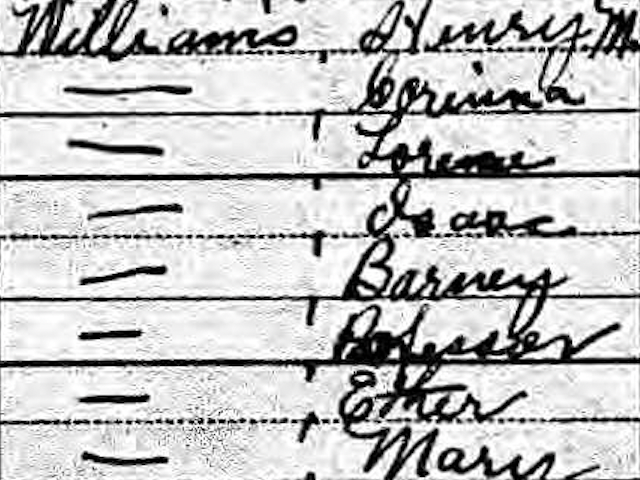 Williams, Henry M.
—, Corinna
—, Lorene
—, Isaac
—, Barney
—, Professor
—, Ether
—, Mary